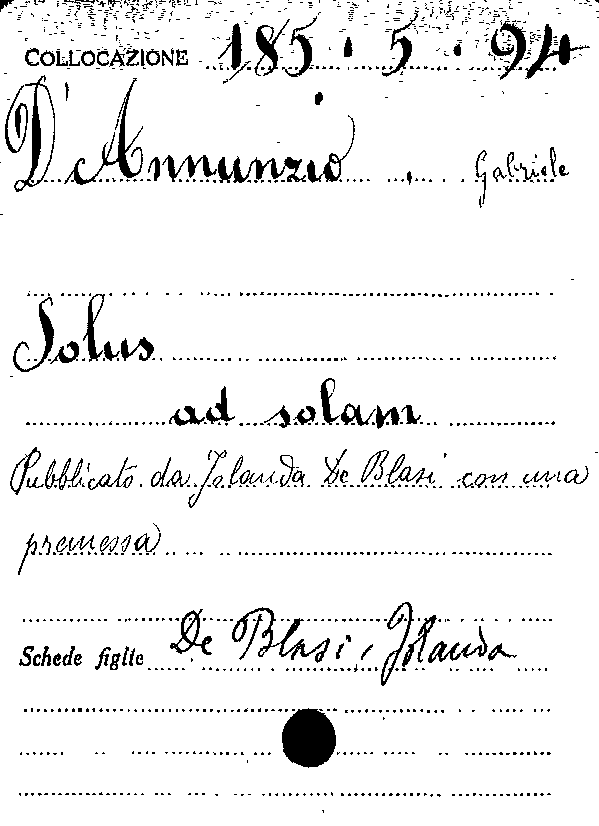 COLLOCAZIONE 185.5.94
D'Annunzio, Gabriele
Solus
ad solam
Pubblicato da Jolanda De Blasi con una
premessa
Schede figlie De Blasi, Jolanda